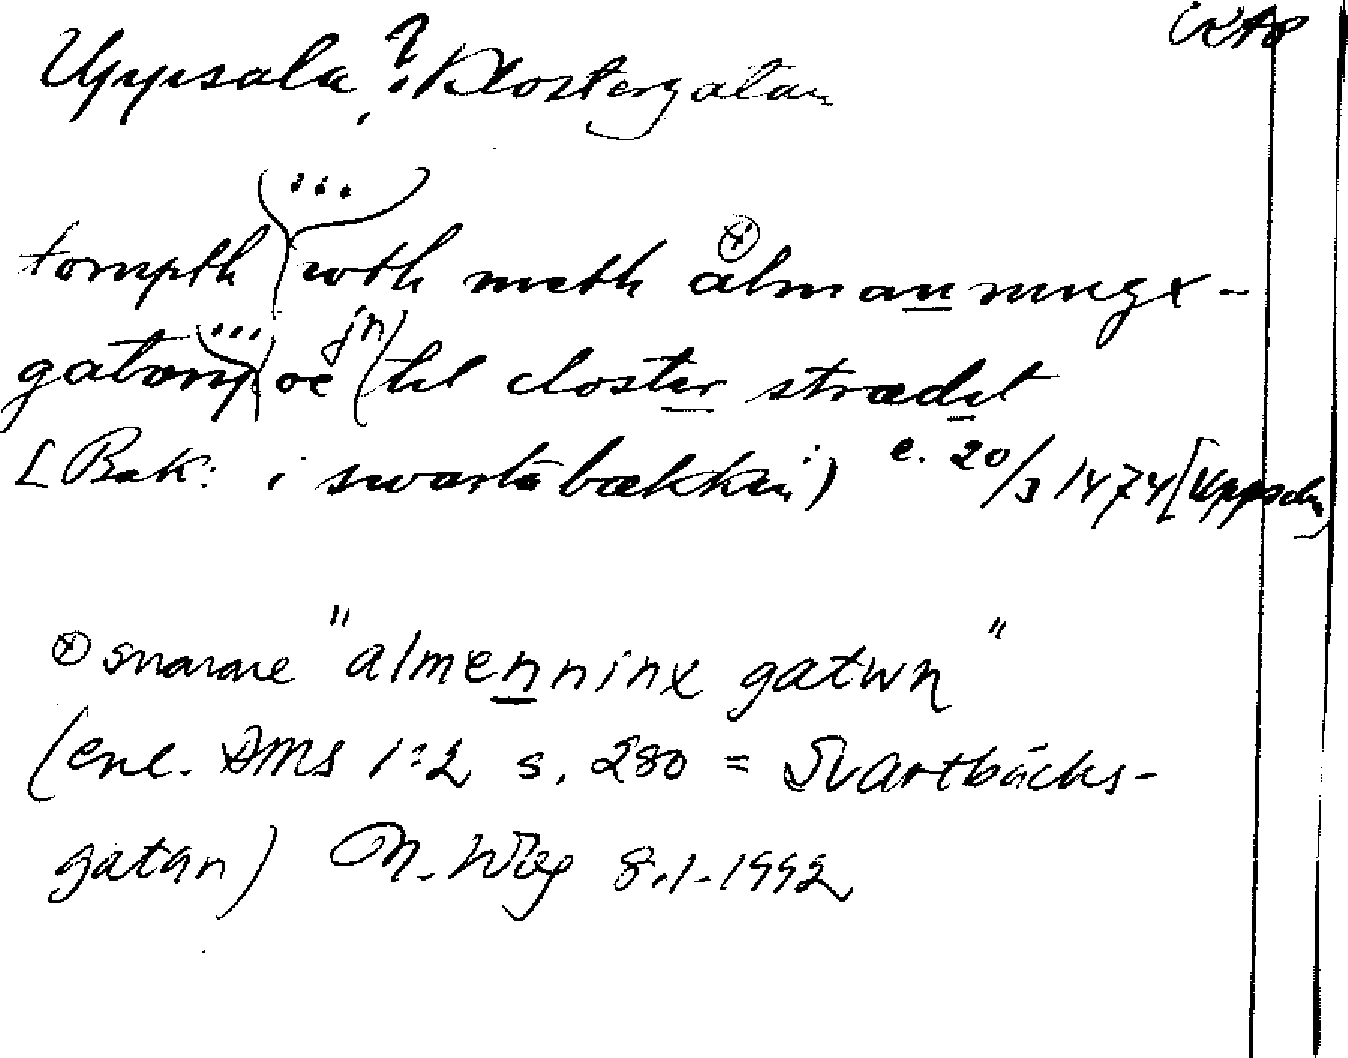 Uppsala, ? Klostergatan
tompth ... wth meth almanningx-
gatwn ... oc jn til closter strædet
[Bak: i swartabækkin) e. 20/3 1474 [Uppsala]
ⓧ snarare "almenninx gatwn"
(enl. DMS 1:2 s. 280 = Svartbäcks-
gatan) 8.1.1992